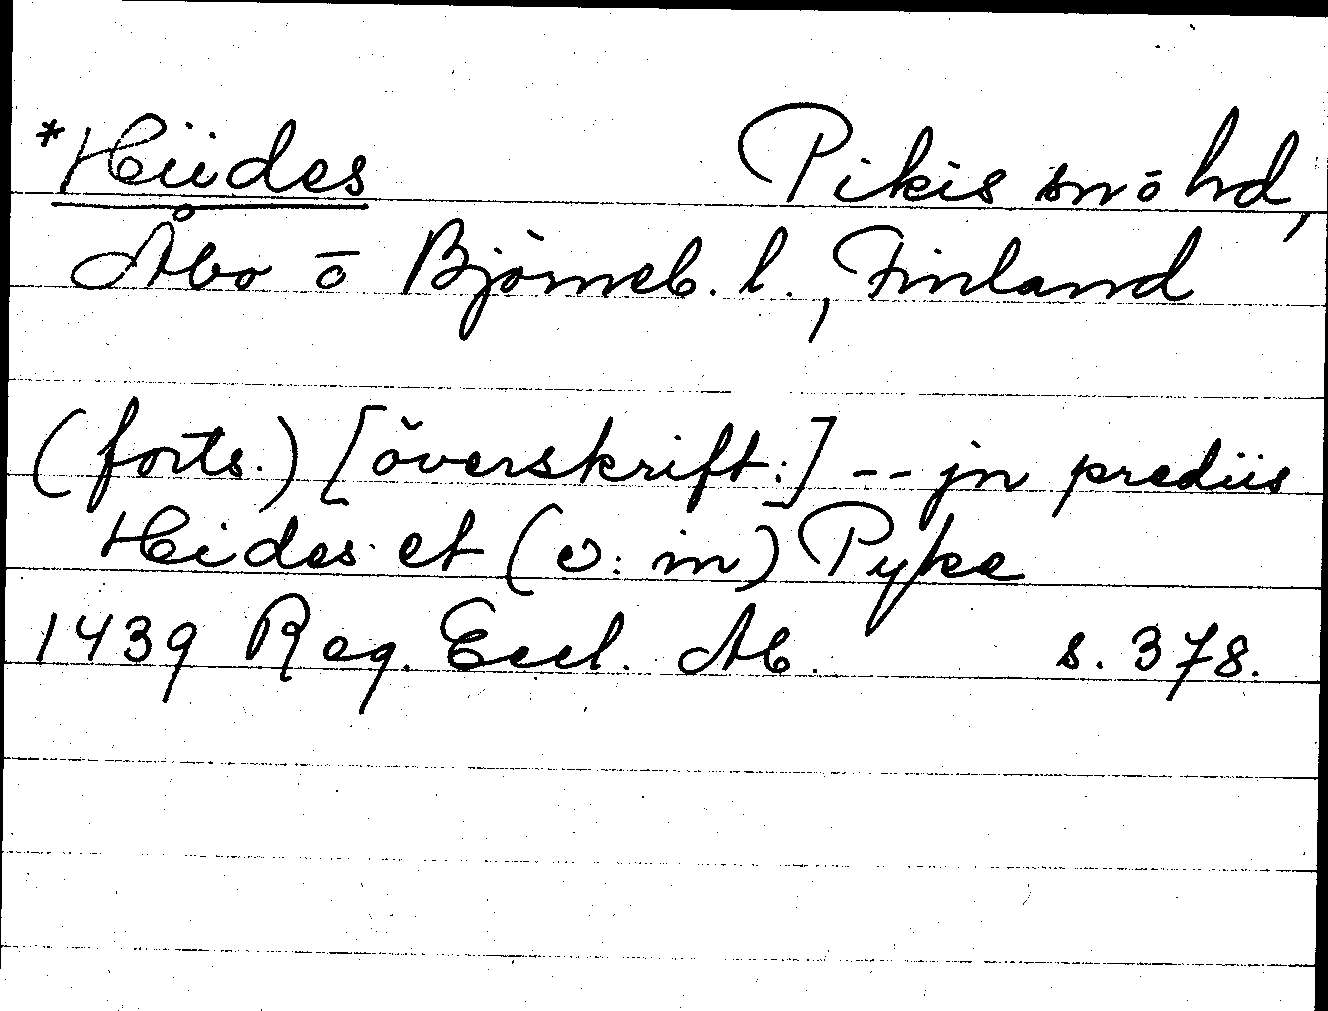 *Hiides Pikis sn ō hd,
Åbo ō Björneb. l., Finland
(forts.) [överskrift:] -- jn prediis
Heides et (ɔ: in) Pyke
1439 Reg. Eccl. Ab. s. 378.